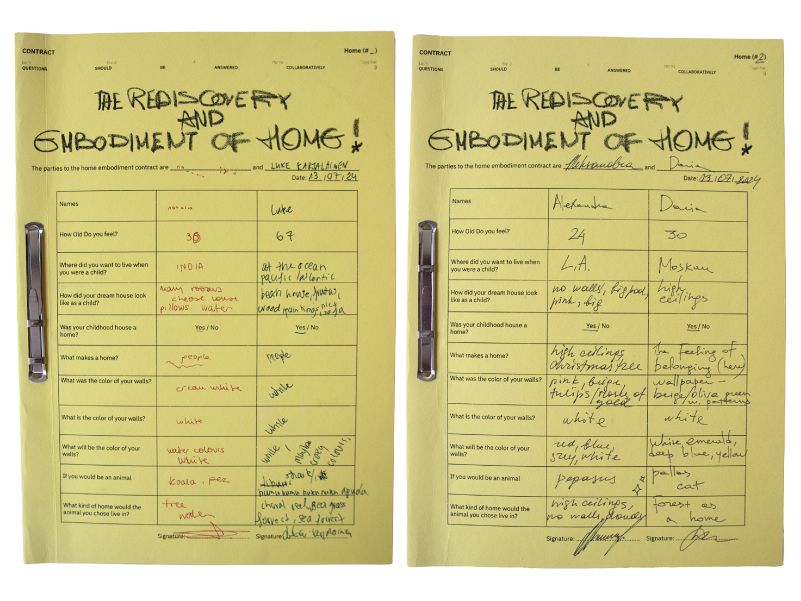 CONTRACT
Home (#_)
QUESTIONS SHOULD BE ANSWERED COLLABORATIVELY
THE REDISCOVERY
AND
EMBODIMENT OF HOME!
The parties to the home embodiment contract are and LUKE KARJALAINEN
Date: 13/07/24
Names Luke
How Old Do you feel? 67
Where did you want to live when you were a child? INDIA at the ocean pacific/atlantic
How did your dream house look like as a child? many rooms cheese house pillows water beach house,
Was your childhood house a home? Yes / No Yes / No
What makes a home? people people
What was the color of your walls? cream white white
What is the color of your walls? white white
What will be the color of your walls? water colours white white, maybe crazy colours,
If you would be an animal koala, bee
What kind of home would the animal you chose live in? tree forest, sea forest
Signature: Signature:
CONTRACT
Home (#2)
QUESTIONS SHOULD BE ANSWERED COLLABORATIVELY
THE REDISCOVERY
AND
EMBODIMENT OF HOME!
The parties to the home embodiment contract are Aleksandra and Daria
Date: 13/07/2024
Names Alexandra Daria
How Old Do you feel? 24 30
Where did you want to live when you were a child? L.A. Moskau
How did your dream house look like as a child? no walls, big bad, pink, big high ceilings
Was your childhood house a home? Yes / No Yes / No
What makes a home? high ceilings, christmas tree the feeling of belonging (here)
What was the color of your walls? pink, beige, tulips/ of gold wallpaper - beige/olive green w. patterns
What is the color of your walls? white white
What will be the color of your walls? red, blue, white white emerald, deep blue, yellow
If you would be an animal pegasus pallas cat
What kind of home would the animal you chose live in? high ceilings, no walls, clouds forest as a home
Signature: Signature: